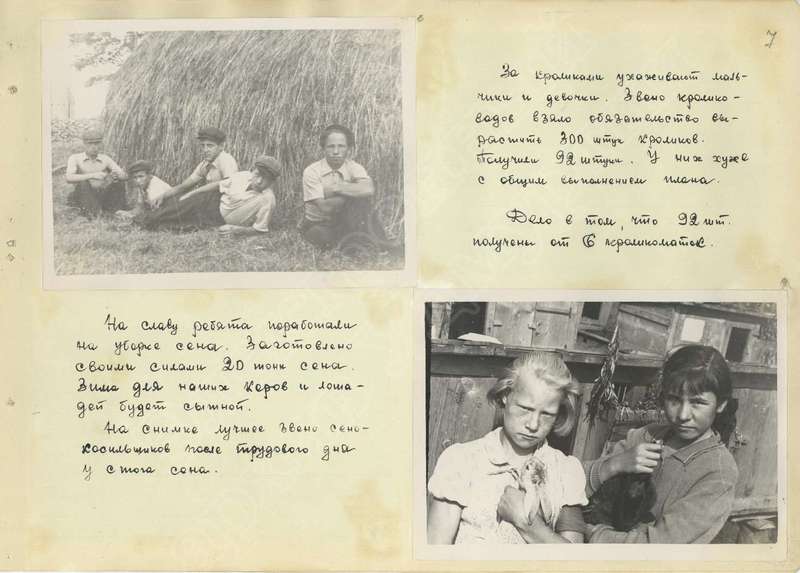 7
За кроликами ухаживают маль-
чики и девочки. Звено кролико-
водов взяло обязательство вы-
растить 300 штук кроликов.
Получили 92 штуки. У них хуже
с общим выполнением плана.
Дело в том, что 92 шт.
получены от 6 кроликоматок.
На славу ребята поработали
на уборке сена. Заготовлено
своими силами 20 тонн сена.
Зима для наших коров и лоша-
дей будет сытной.
На снимке лучшее звено сено-
косильщиков после трудового дня
у стога сена.